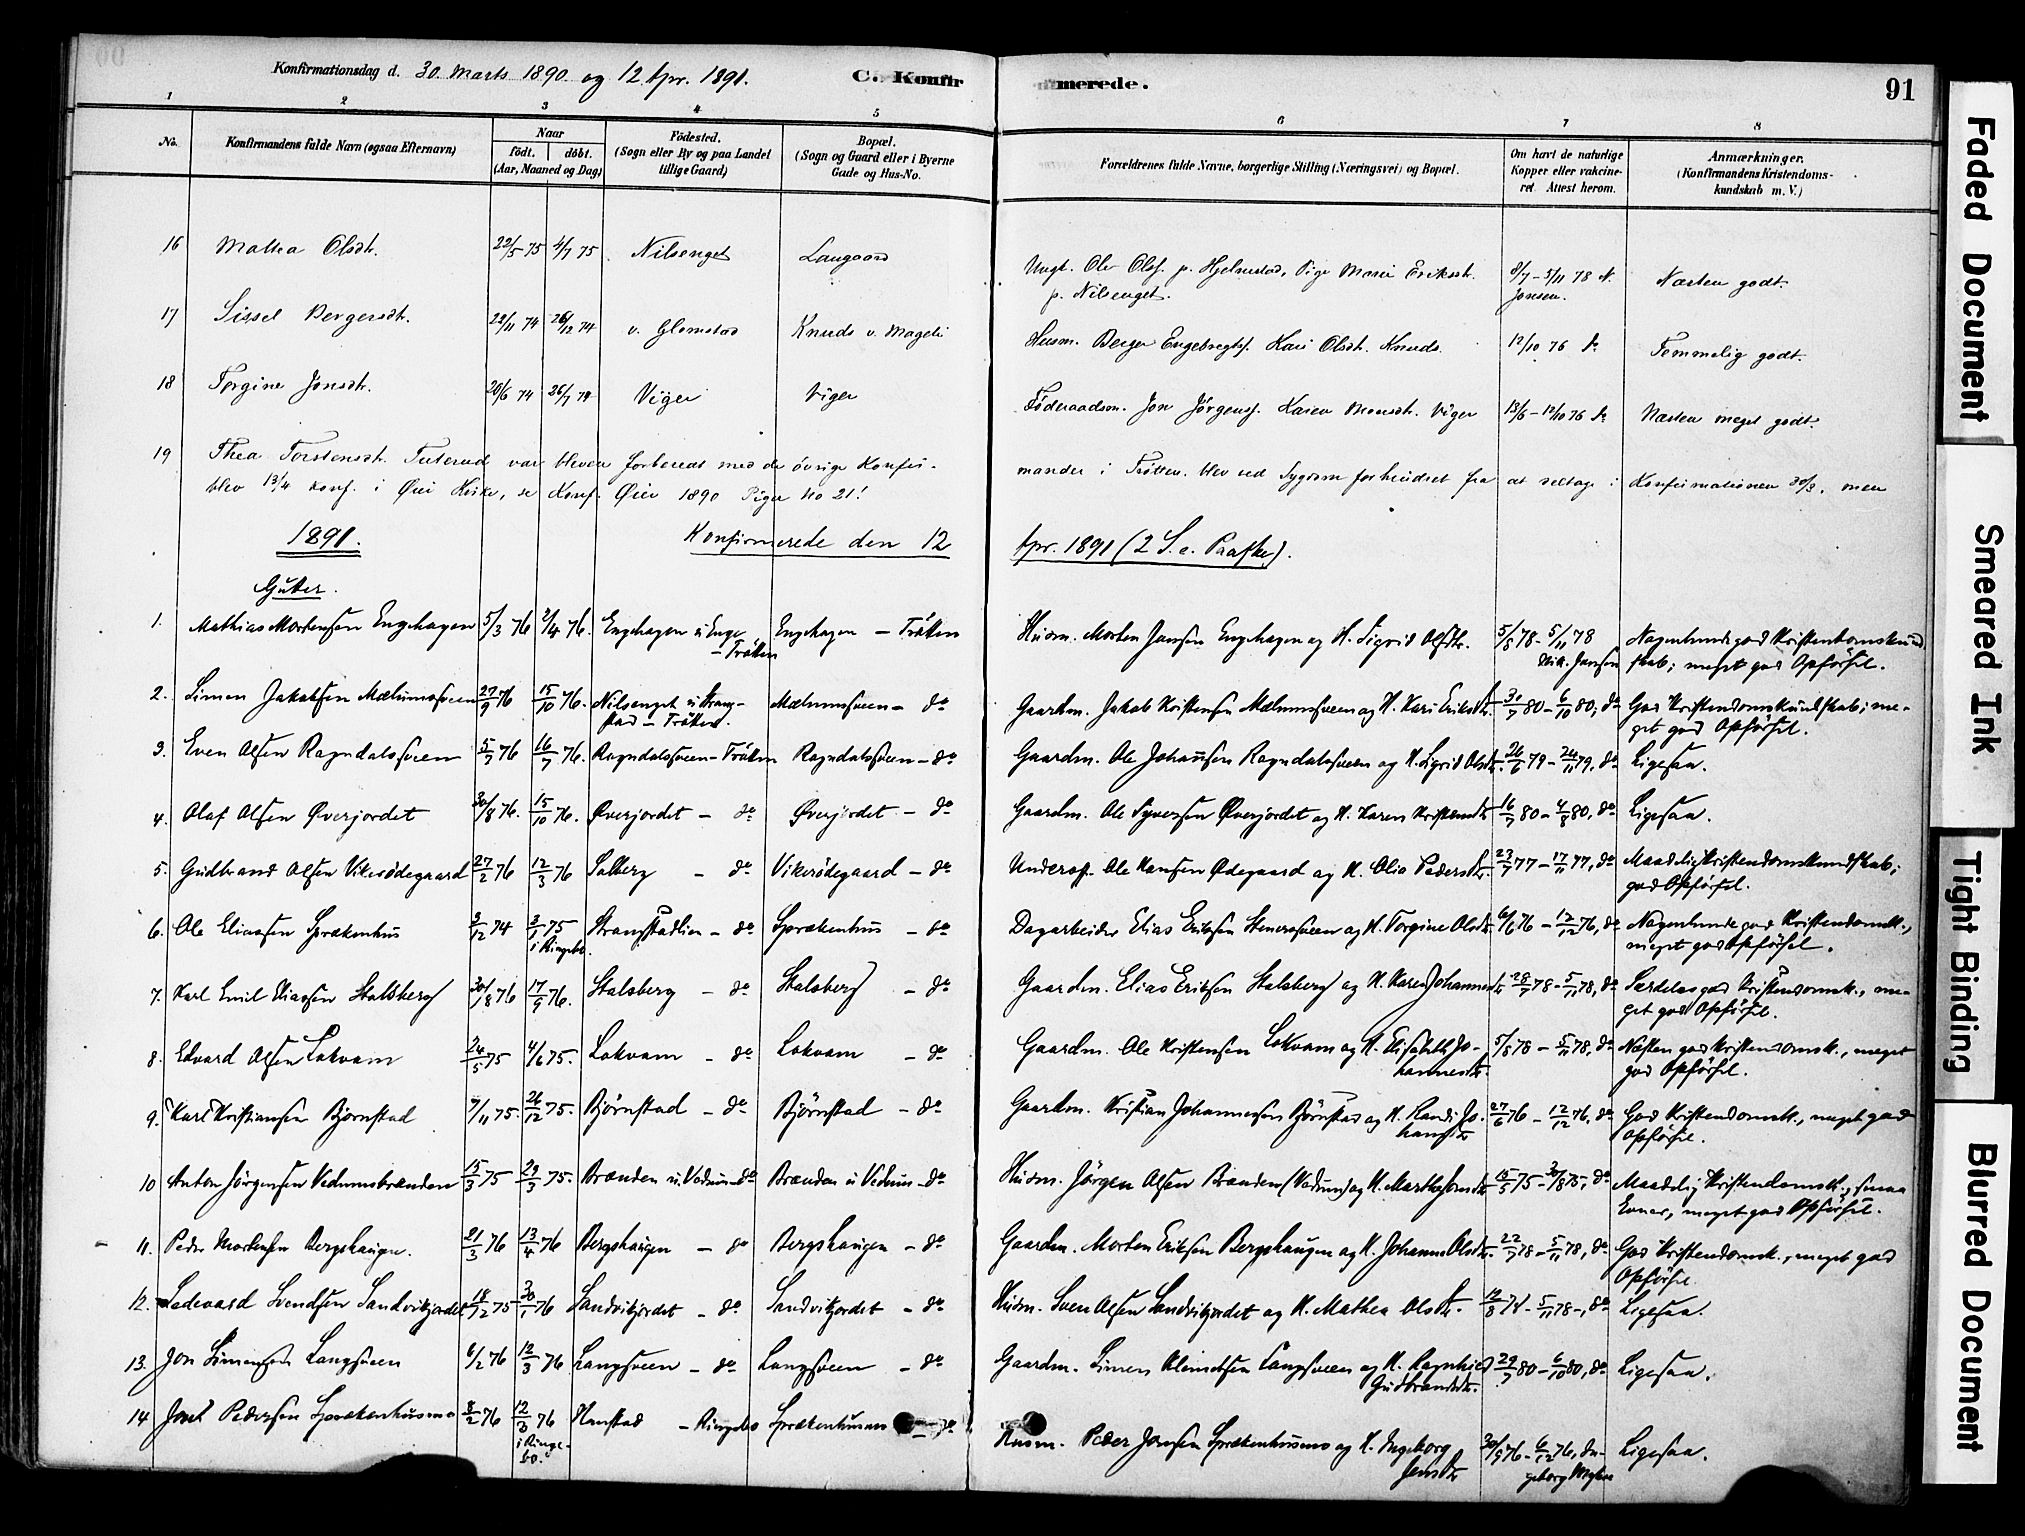 Konfirmationsdag d. 30. Marts 1890. og 12. Apr. 1891. C. Konfirmerede. 91
1 2 3 4 5 6 7 8
No. Konfirmandens fulde Navn (ogsaa Efternavn) Naar födt. döbt. (Aar, Maaned og Dag) Födested. (Sogn eller By og paa Landet tillige Gaard) Bopæl. (Sogn og Gaard eller i Byerne Gade og Hus-No. Forældrenes fulde Navne, borgerlige Stilling (Næringsvei) og Bopæl. Om havt de naturlige Kopper eller vakcineret. Attest herom. Anmærkninger. (Konfirmandens Kristendomskundskab m. V.)
16 Mathea Olsdt. 22/5 75 4/7 75 Nilsenget Laugaard Ungk. Ole Olsf. p. Hjelmstad, Pige Marie Eriksdt. p. Nilsenget. 8/7 - 5/11 78 N. Jonsen. Næsten godt.
17 Sissel Bergersdt. 22/11 74 26/12 74 v. Glomstad Knuds v. Mageli Husm. Berger Engebregtsf. Kari Olsdt. Knuds. 12/10 76 do Temmelig godt.
18 Torgine Jonsdt. 20/6 74 26/7 74 Viger Viger Föderaadsm. Jon Jörgensf. Karen Monsdt. Viger 13/6 - 12/10 76 do Næsten meget godt.
19 Thea Torstensdt. Tuterud var bleven forberedt med de övrige Konfirmander i Tretten. blev ved Sygdom forhindret fra at deltage i Konfirmationen 30/3, men
blev 13/4 konf. i Øier Kirke, se Konf. Øier 1890 Piger No 21!
1891. Konfirmerede den 12 Apr. 1891 (2 S. e. Paaske).
Gutter.
1. Mathias Mortensen Engehagen 5/3 76 2/4 76. Engehagen u Enge - Tröten Engehagen - Tröten Husm. Morten Jansen Engehagen og H. Sigrid Olsdtr. 5/8 78 - 5/11 78 Nik. Jansen Nogenlunde god Kristendomskundskab; meget god Opförsel.
2. Simen Jakobsen Mælumsveen 27/9 76 15/10 76. Nilsenget u Strangstad - Tröten. Mælumsveen - do Gaardm. Jakob Kristensen Mælumsveen og H. Kari Eriksdtr. 30/7 80 - 6/10 80, do God Kristendomskundskab; meget god Opförsel.
3. Even Olsen Rogndalssveen 5/7 76 16/7 76. Rogndalssveen - Tröten Rogndalssveen - do Gaardm. Ole Johansen Rogndalssveen og H. Sigrid Olsdtr. 26/6 79 - 24/11 79, do Ligesaa.
4. Olaf Olsen Øverjordet 30/8 76. 15/10 76. Øverjordet - do Øverjordet - do Gaardm. Ole Syversen Øverjordet og H. Karen Kristensdtr. 16/7 80 - 4/8 80, do Ligesaa.
5. Gudbrand Olsen Vikesödegaard 27/2 76 12/3 76 Solberg - do Vikesödegaard - do Underof. Ole Hansen Ödegaard og H. Olia Pedersdtr. 23/7 77 - 17/11 77, do Maadelig Kristendomskundskab; god Opförsel.
6. Ole Eliassen Sprækenhus 3/12 74 3/1 75 i Ringebo. Strangstadlien - do Sprækenhus - do Dagarbeider Elias Eriksen Stenersveen og H. Torgine Olsdtr. 6/6 76 - 12/12 76, do Nogenlunde god Kristendomsk., meget god Opförsel.
7. Karl Emil Eliassen Stalsberg 30/8 76 17/9 76. Stalsberg - do Stalsberg - do Gaardm. Elias Eriksen Stalsberg og H. Karen Johannesdtr. 28/7 78 - 5/11 78, do Særdeles god Kristendomsk., meget god Opförsel.
8. Edvard Olsen Lokvam 24/5 75 4/6 75. Lokvam - do Lokvam - do Gaardm. Ole Kristensen Lokvam og H. Elisabeth Johannesdtr. 5/8 78 - 5/11 78, do Næsten god Kristendomsk., meget god Opförsel.
9. Karl Kristiansen Björnstad 7/11 75. 26/12 75. Björnstad - do Björnstad - do Gaardm. Kristian Johannessen Björnstad og H. Randi Johansdtr. 27/6 76 - 12/12 76, do God Kristendomsk., meget god Opförsel.
10 Anton Jörgensen Vedumsbrænden 15/3 75 29/3 75. Brænden u. Vedum - do Brænden u Vedum - do Husm. Jörgen Olsen Brænden (Vedum) og H. Marthe Jonsdtr. 15/5 75 - 30/8 75, do Maadelig Kristendomsk., smaa Evner, meget god Opförsel.
11. Peder Mortensen Bergshaugen. 21/3 76 13/4 76 Bergshaugen - do Bergshaugen - do Gaardm. Morten Eriksen Bergshaugen og H. Johanne Olsdtr. 22/7 78 - 5/11 78, do God Kristendomsk., meget god Opförsel.
12. Ledevard Svendsen Sandvikjordet 18/12 75 30/1 76 Sandvikjordet - do Sandvikjordet - do Husm. Sven Olsen Sandvikjordet og H. Mathea Olsdtr. 12/8 78 - 5/11 78 -, do Ligesaa.
13. Jon Simensen Langsveen 6/2 76 12/3 76 Langsveen - do Langsveen - do Gaardm. Simen Klemetsen Langsveen og H. Ragnhild Gudbrandsdtr. 29/7 80 - 6/10 80, do Ligesaa.
14 Pedersen Sprækenhusmo 8/2 76 12/3 76 i Ringebo. - Ringebo Sprækenhusmo - do Husm. Peder Jonsen Sprækenhusmo og H. Ingeborg Jensdtr. 30/9 76 - 6/12 76, Ingeborg Ligesaa.
Faded Document
Smeared Ink
Tight Binding
Blurred Document